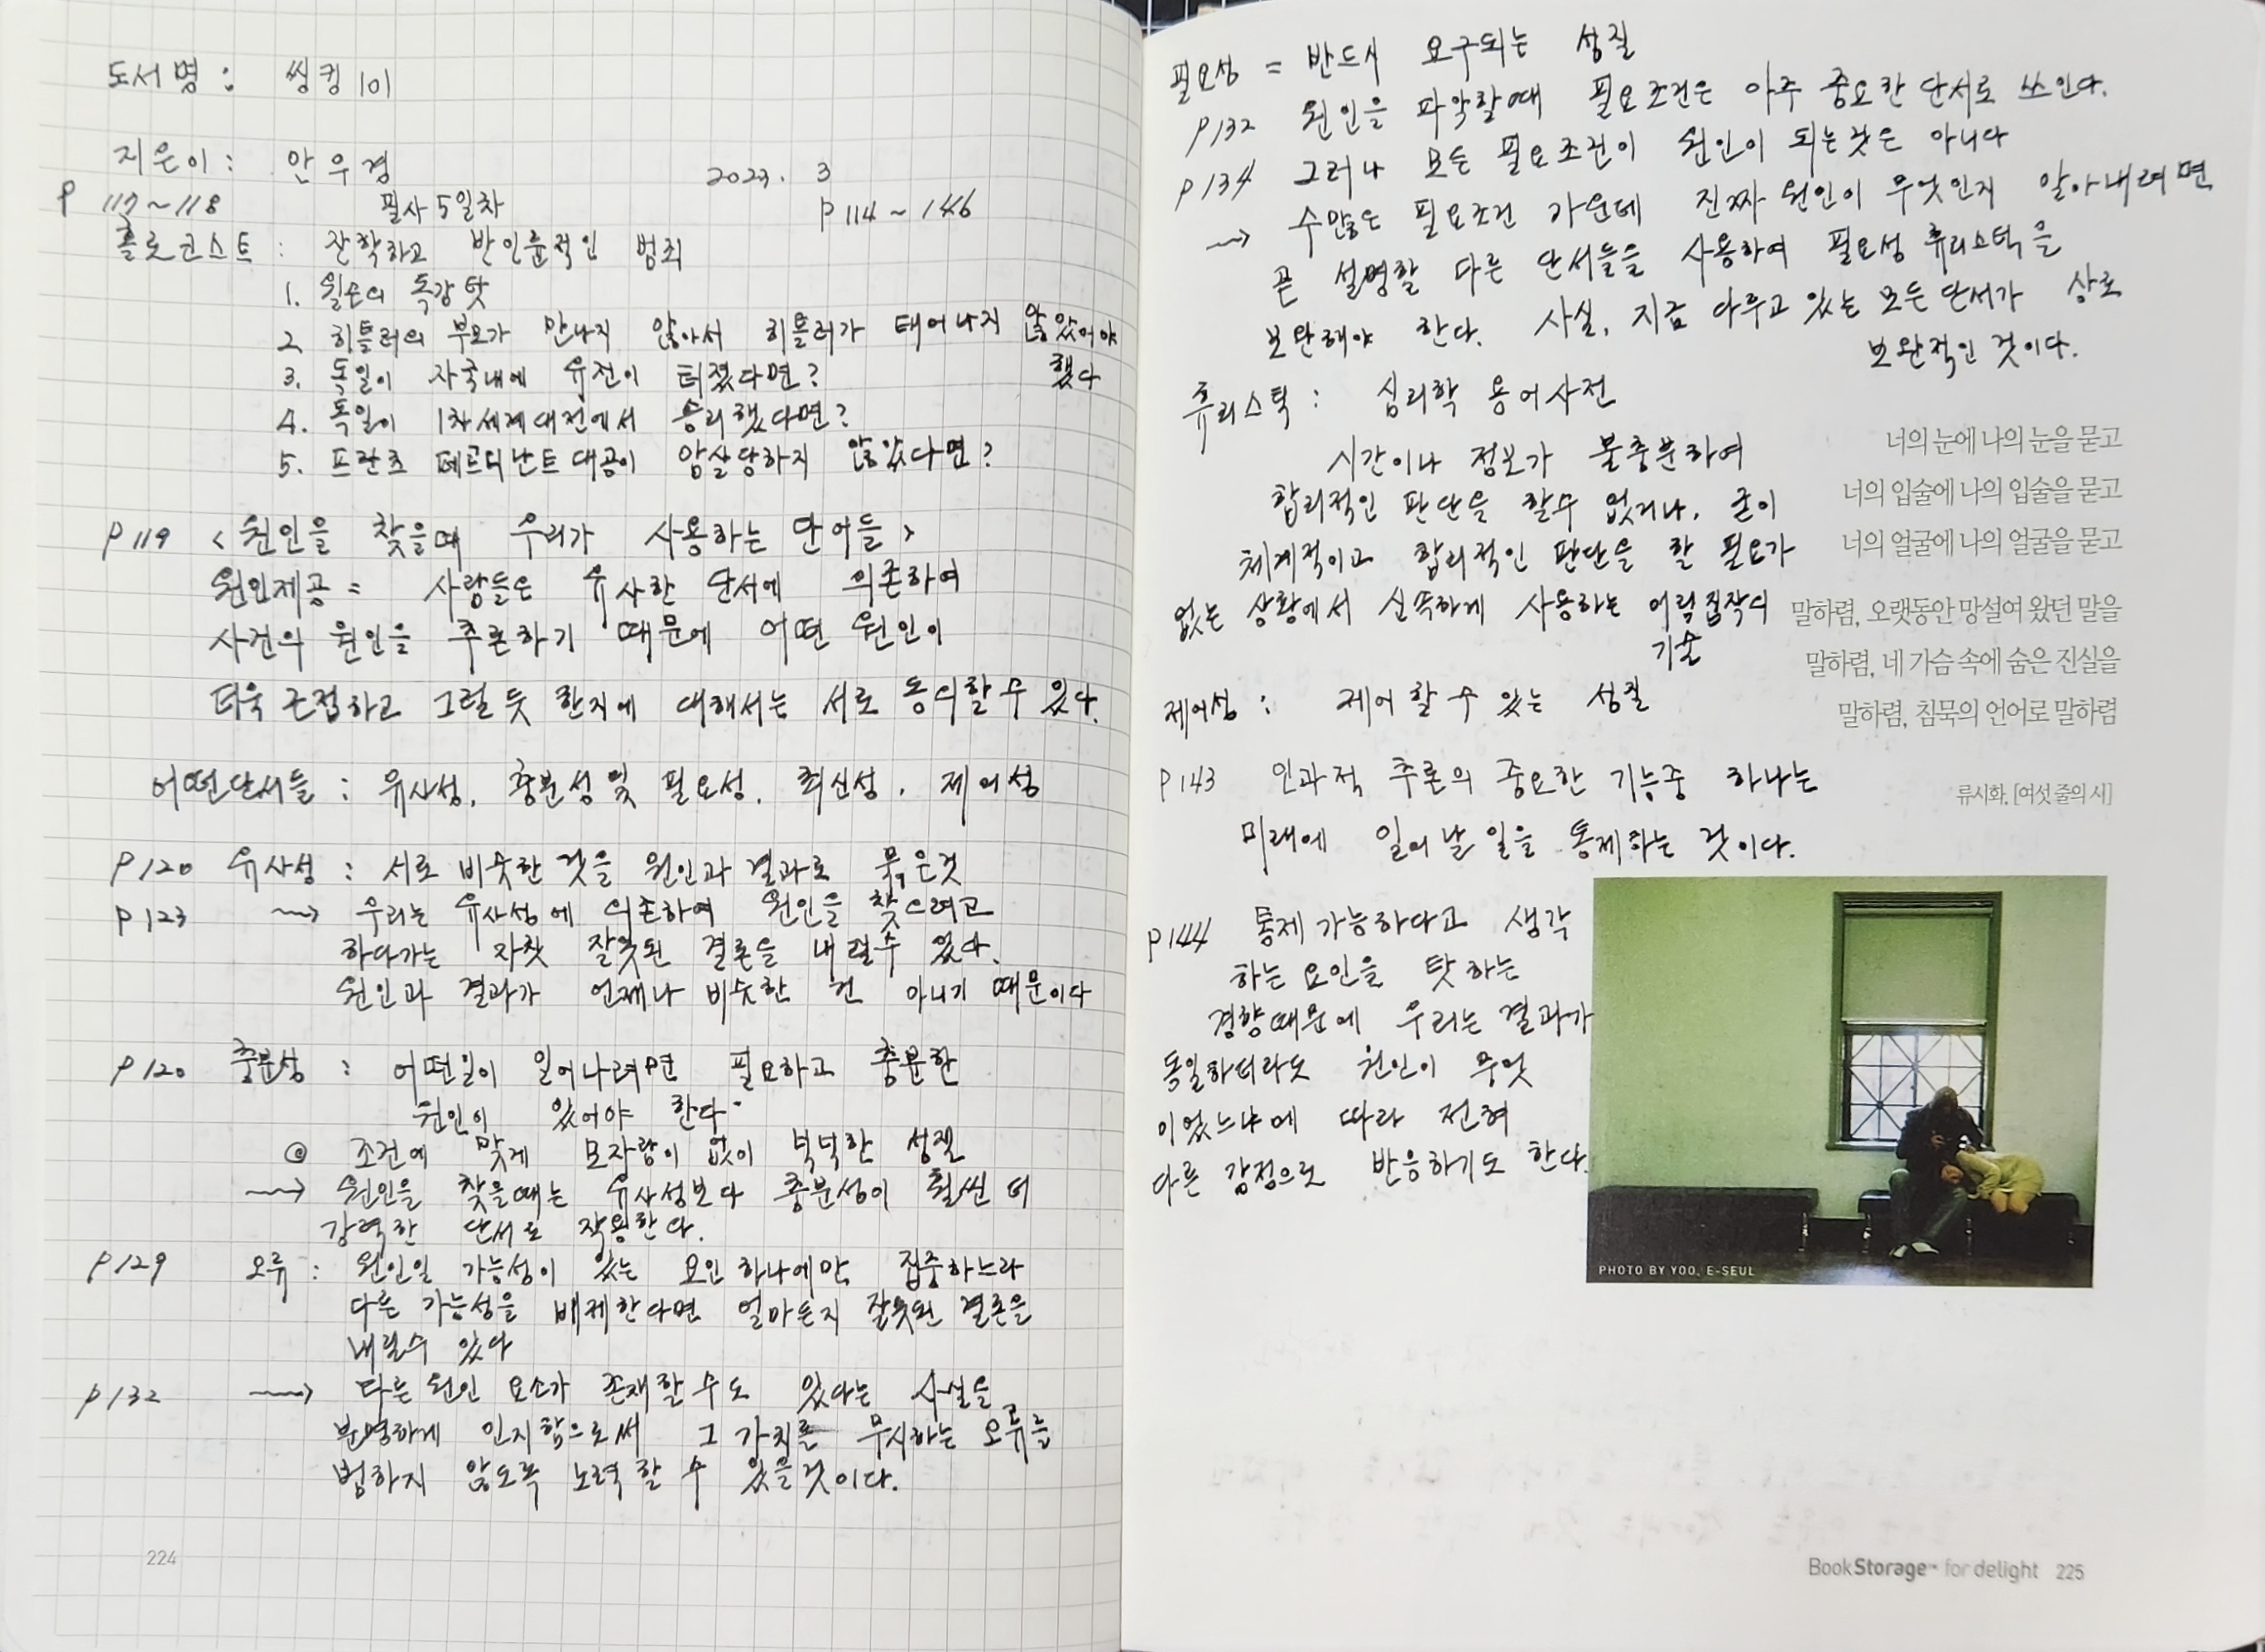 도서명 : 씽킹 101
지은이 : 안우경
2023. 3
P 117~118 필사 5일차 P 114 ~ 146
홀로코스트 : 잔학하고 반인륜적인 범죄
1. 윌슨의 독감 탓
2. 히틀러의 부모가 만나지 않아서 히틀러가 태어나지 않았어야
했다
3. 독일이 자국내에 유전이 터졌다면?
4. 독일이 1차세계대전에서 승리했다면?
5. 프란츠 페르디난트 대공이 암살당하지 않았다면?
P 119 <원인을 찾을때 우리가 사용하는 단어들>
원인제공 = 사람들은 유사한 단서에 의존하여
사건의 원인을 추론하기 때문에 어떤 원인이
더욱 근접하고 그럴 듯 한지에 대해서는 서로 동의할 수 있다.
어떤단서들 : 유사성, 충분성 및 필요성, 최신성, 제어성
P 120 유사성 : 서로 비슷한 것을 원인과 결과로 묶은것
P 123 → 우리는 유사성에 의존하여 원인을 찾으려고
하다가는 자칫 잘못된 결론을 내릴수 있다.
원인과 결과가 언제나 비슷한 건 아니기 때문이다
P 120 충분성 : 어떤일이 일어나려면 필요하고 충분한
원인이 있어야 한다.
◎ 조건에 맞게 모자람이 없이 넉넉한 성질
→ 원인을 찾을때는 유사성보다 충분성이 훨씬 더
강력한 단서로 작용한다.
P 129 오류 : 원인일 가능성이 있는 요인 하나에만 집중하느라
다른 가능성을 배제한다면 얼마든지 잘못된 결론을
내릴수 있다
P 132 → 다른 원인 요소가 존재할 수도 있다는 사실을
분명하게 인지함으로써 그 가치를 무시하는 오류를
범하지 않도록 노력할 수 있을것이다.
224
필요성 = 반드시 요구되는 성질
P 132 원인을 파악할때 필요조건은 아주 중요한 단서로 쓰인다.
P 134 그러나 모든 필요조건이 원인이 되는것은 아니다
→ 수많은 필요조건 가운데 진짜 원인이 무엇인지 알아내려면
곧 설명할 다른 단서들을 사용하여 필요성 휴리스틱을
보완해야 한다. 사실, 지금 다루고 있는 모든 단서가 상호
보완적인 것이다.
휴리스틱 : 심리학 용어사전
시간이나 정보가 불충분하여
합리적인 판단을 할수 없거나, 굳이
체계적이고 합리적인 판단을 할 필요가
없는 상황에서 신속하게 사용하는 어림짐작의
기술
제어성 : 제어 할 수 있는 성질
P 143 인과적 추론의 중요한 기능중 하나는
미래에 일어날 일을 통제하는 것이다.
P 144 통제 가능하다고 생각
하는 요인을 탓 하는
경향때문에 우리는 결과가
동일하더라도 원인이 무엇
이었느냐에 따라 전혀
다른 감정으로 반응하기도 한다.
너의 눈에 나의 눈을 묻고
너의 입술에 나의 입술을 묻고
너의 얼굴에 나의 얼굴을 묻고
말하렴, 오랫동안 망설여 왔던 말을
말하렴, 네 가슴 속에 숨은 진실을
말하렴, 침묵의 언어로 말하렴
류시화, [여섯 줄의 시]
PHOTO BY YOO, E-SEUL
BookStorage™ for delight 225